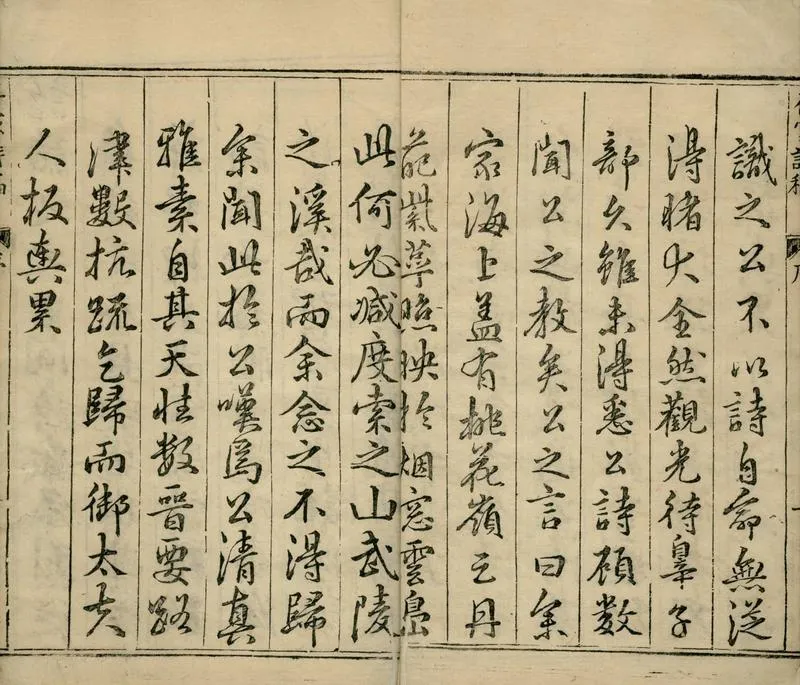 識之公不以詩自無從
淂睹大全然觀光待辠子
部久雖未淂悉公詩頋数
聞公之教矣公之言曰余
家海上盖有桃花嶺之丹
葩紫萼照映扵烟窓雲島
此何必減度索之山武陵
之溪哉而余念之不淂歸
余聞此扵公嘆爲公清真
雅素自其天性数晉要路
津數抗疏乞歸而御太夫
人板輿累